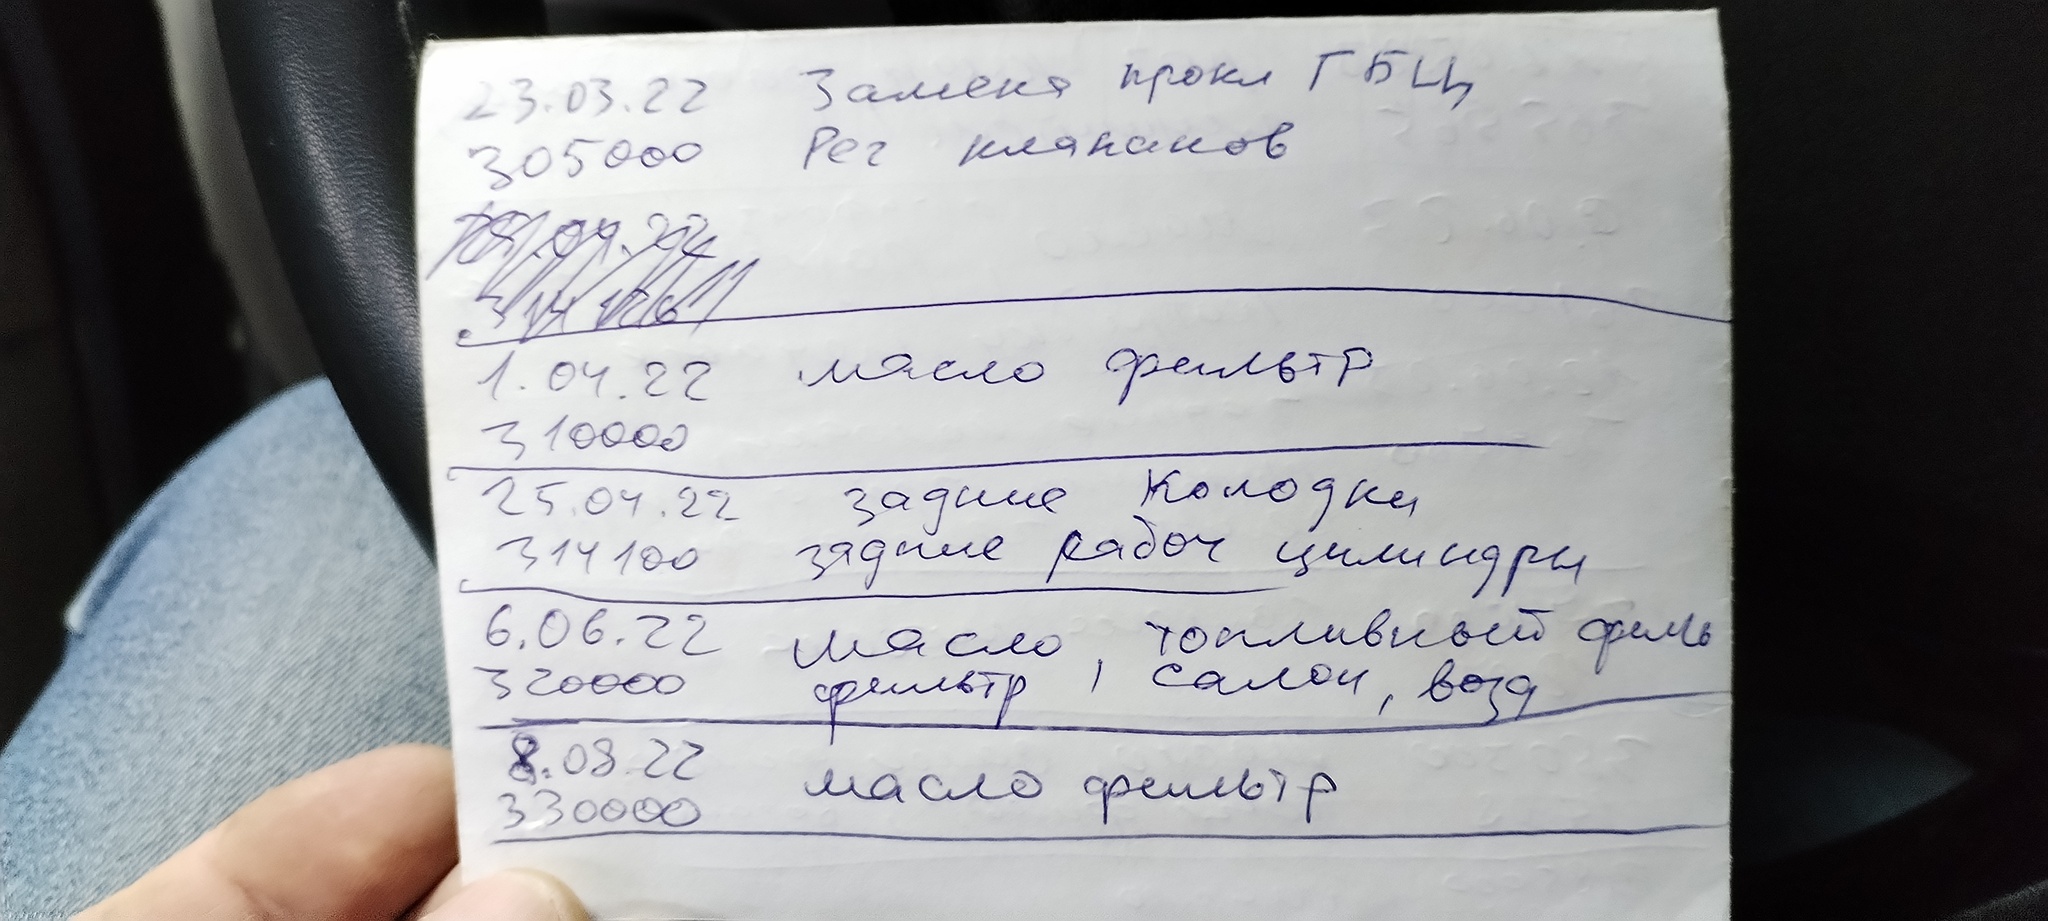 23.03.22 Замена прокл ГБЦ
305000 Рег клапанов
1.04.22 масло фильтр
310000
25.04.22 задние колодки
314100 задние рабоч цилиндры
6.06.22 масло, топливный филь
320000 фильтр, салон, возд
8.08.22 масло фильтр
330000